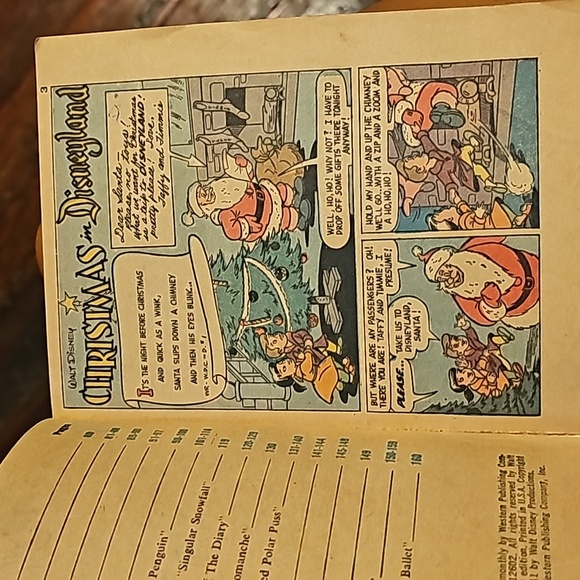 3
WALT DISNEY
CHRISTMAS in Disneyland
Dear Santa
what we want for Christmas
is a trip to DISNEYLAND,
pretty please. Love,
Taffy and Timmie
IT'S THE NIGHT BEFORE CHRISTMAS
AND QUICK AS A WINK,
SANTA SLIPS DOWN A CHIMNEY
AND THEN HIS EYES BLINK...
WELL, HO, HO! WHY NOT? I HAVE TO
DROP OFF SOME GIFTS THERE TONIGHT
ANYWAY!
BUT WHERE ARE MY PASSENGERS? OH!
THERE YOU ARE! TAFFY AND TIMMIE, I
PRESUME!
PLEASE... TAKE US TO
DISNEYLAND,
SANTA!
HOLD MY HAND AND UP THE CHIMNEY
WE'LL GO...WITH A ZIP AND A ZOOM AND
A HO, HO, HO!
Page
100
119
130
131-140
141-144
145-148
149
150-159
160
Penguin"
"Singular Snowfall"
The Diary"
omanche"
ed Polar Puss"
Ballet"
monthly by Western Publishing Com-
22602. All rights reserved by Walt
edition. Printed in U.S.A. Copyright
by Walt Disney Productions.
estern Publishing Company, Inc.